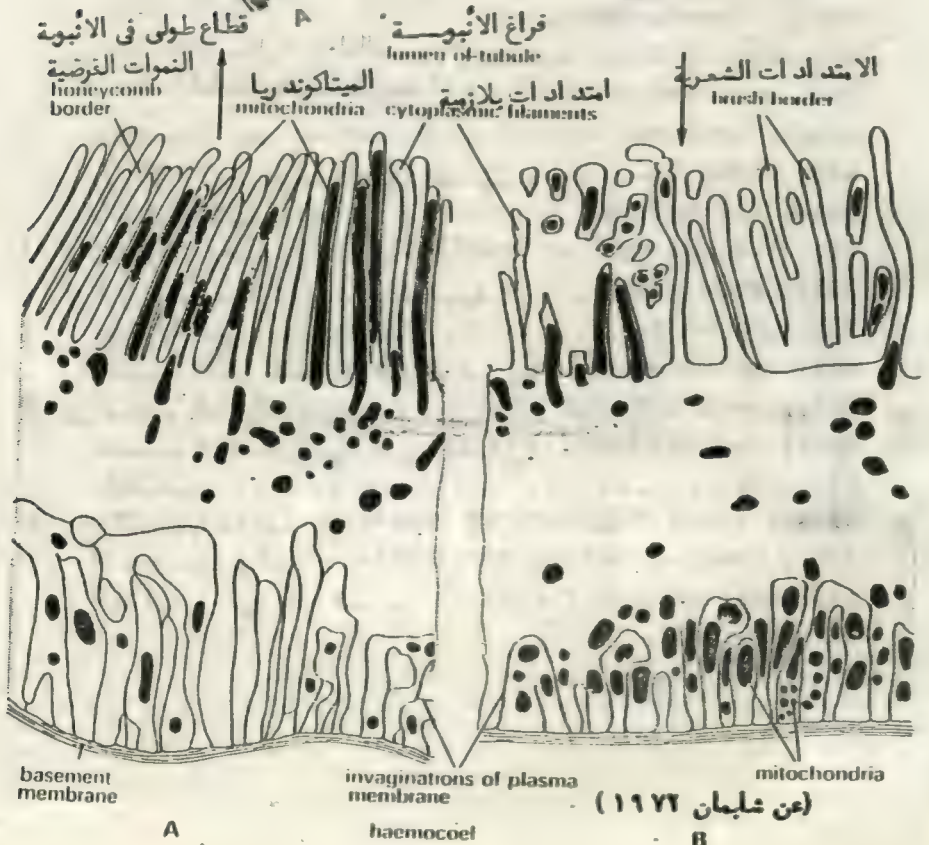 A
قطاع طولى فى الأنبوبة
فراغ الأنبوبـــــة
lumen of tubule
النموات القرضية
honeycomb
border
الميتاكوندريا
mitochondria
امتدادات بلازمية
cytoplasmic filaments
الامتدادات الشعرية
brush border
basement
membrane
invaginations of plasma
membrane
mitochondria
(عن شابمان ١٩٧٢)
A
haemocoel
B